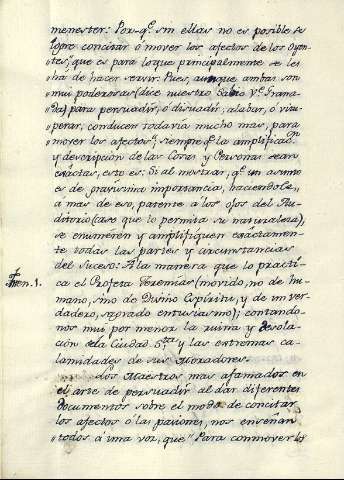 menester: Por-qe. sin ellas no es posible se
logre concitar ó mover los afectos de los Oyen-
tes, que es para lo que principalmente se les
ha de hacer servir. Pues, aunque ambas son
mui poderosas (dice nuestro Sabio Ve. Grana-
da) para persuadir, ó disuadir, alabar, ó vitu-
perar, conducen todavía mucho mas, para
mover los afectos, siempre qe. la amplificacn.
y descripcion de las Cosas y Personas sean
exactas, esto es: Si al mostrar, qe. un asunto
es de gravisima importancia, haciendole,
a mas de eso, patente à los ojos del Au-
ditorio (caso que lo permita su naturaleza),
se enumeren y amplifiquen exactamen-
te todas las partes y circunstancias
del suceso: A la manera que lo practi-
Thren. 1. ca el Profeta Jeremías (movido, no de hu-
mano, sino de Divino Espíritu, y de un ver-
dadero, sagrado entusiasmo); contando-
nos mui por menor la ruina y desola-
ción de la Ciudad Sta. y las extremas ca-
lamidades de sus Moradores.
Los Maestros mas afamados en
el arte de persuadir al dar diferentes
documentos sobre el modo de concitar
los afectos ó las pasiones, nos enseñan
todos á una voz, que "Para conmover los